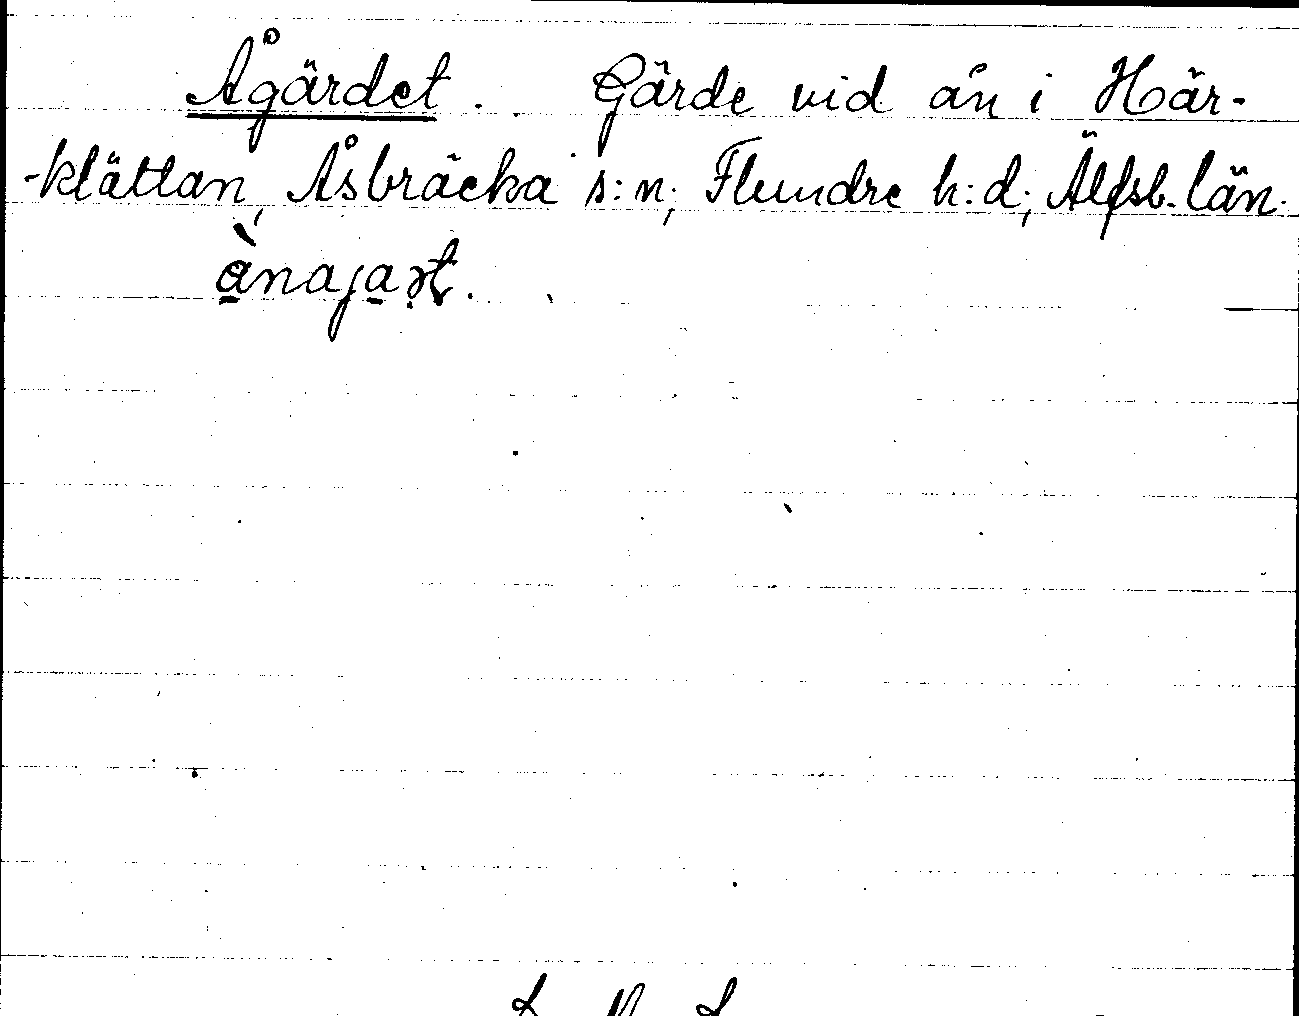 Ågärdet. Gärde vid ån i Här-
-klättan, Åsbräcka s:n; Flundre h:d; Älfsb. län.